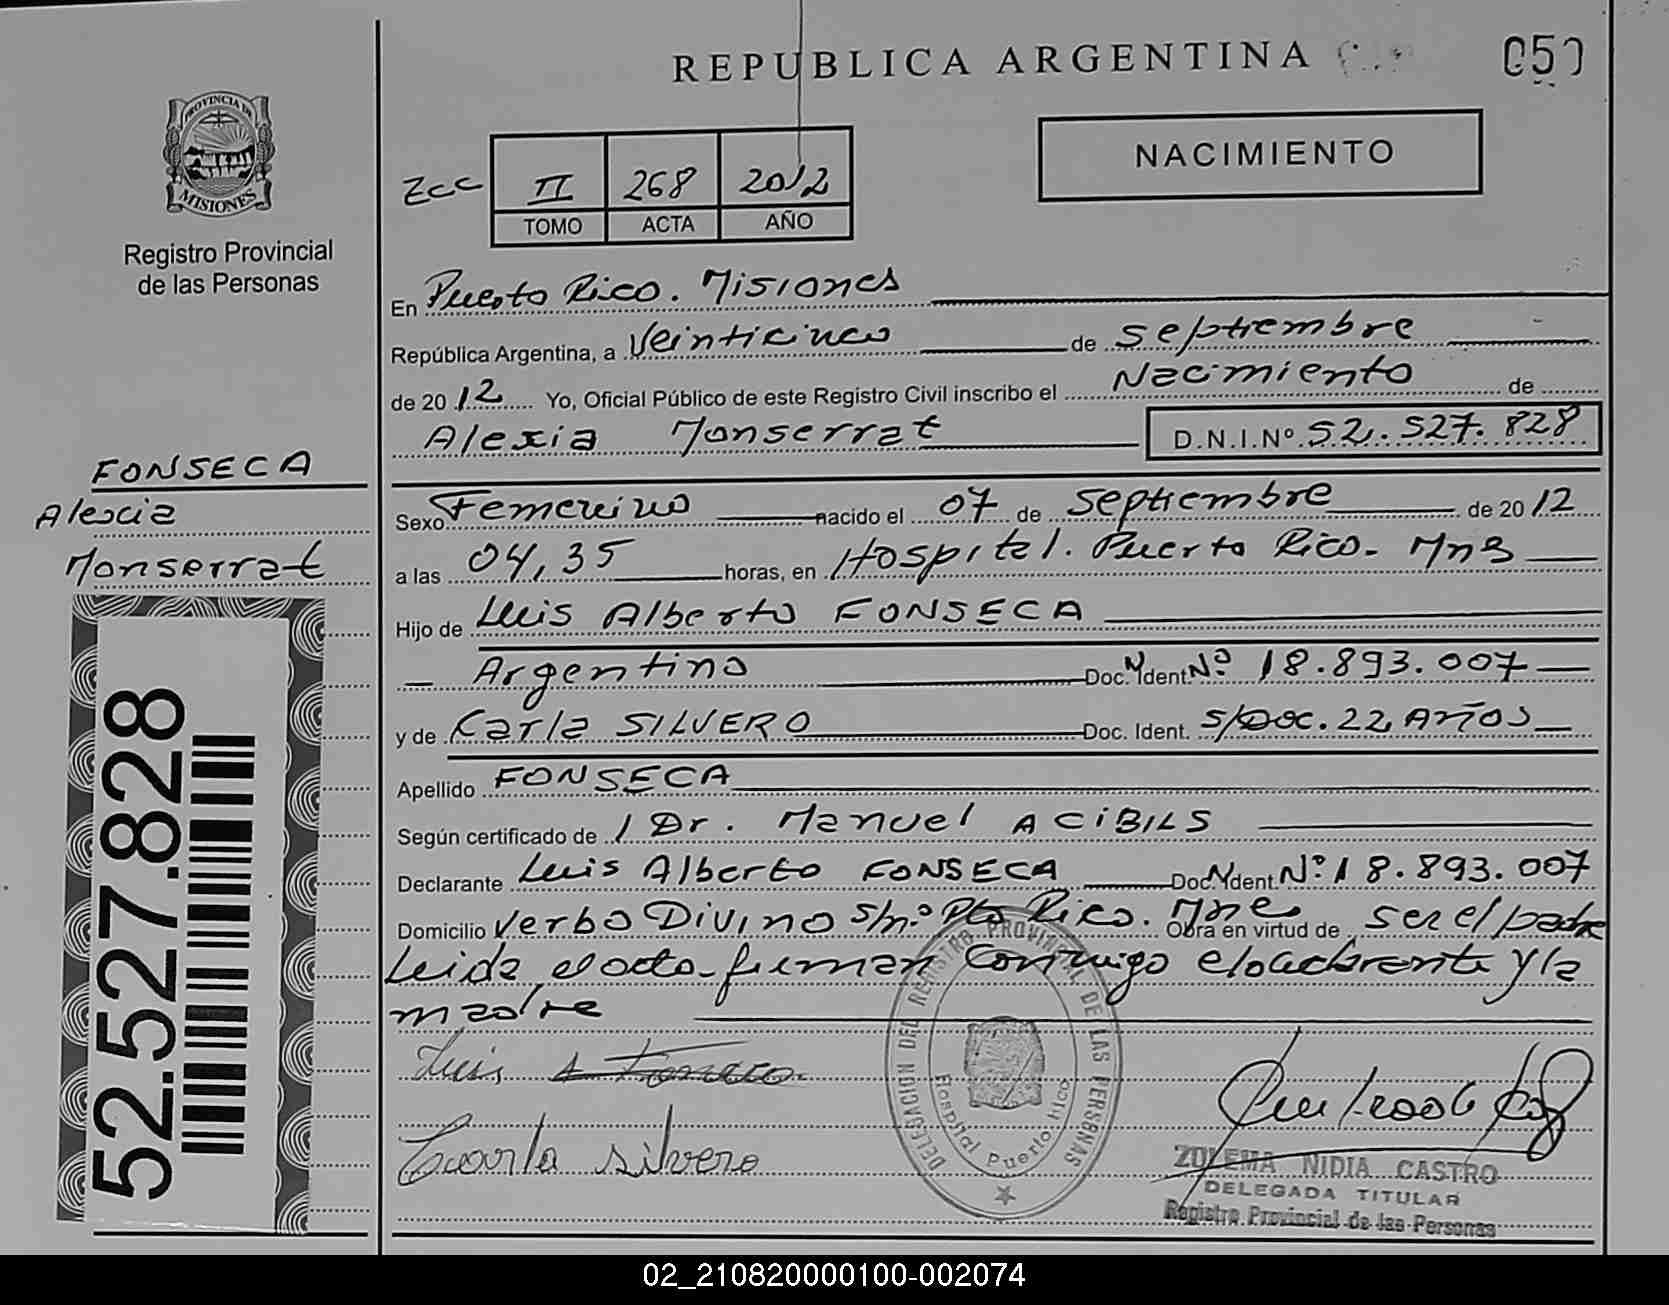 REPUBLICA ARGENTINA
050
PROVINCIA DE
MISIONES
Registro Provincial
de las Personas
NACIMIENTO
Zcc II 268 2012
TOMO ACTA AÑO
En Puerto Rico. Misiones
República Argentina, a Veinticinco de septiembre
de 2012 Yo, Oficial Público de este Registro Civil inscribo el Nacimiento de
Alexia Monserrat D.N.I.Nº 52.527.828
FONSECA
Alexia
Monserrat
Sexo Femenino nacido el 07 de septiembre de 2012
a las 04,35 horas, en Hospital. Puerto Rico. Mns
Hijo de Luis Alberto FONSECA
Argentino Doc. N Ident. Nº 18.893.007
y de Carla SILVERO Doc. Ident. s/Doc. 22 Años
Apellido FONSECA
Según certificado de / Dr. Manuel ACIBILS
Declarante Luis Alberto FONSECA Doc. N Ident. Nº 18.893.007
Domicilio Verbo Divino s/nº Pto Rico. Mne Obra en virtud de ser el padre
Leida el acta firman conmigo el declarante y la
madre
Luis A Fonseca
Carla silvero
DELEGACION DEL REGISTRO PROVINCIAL DE LAS PERSONAS
Hospital Puerto Rico
ZULEMA NIDIA CASTRO
DELEGADA TITULAR
Registro Provincial de las Personas
52.527.828
02_210820000100-002074